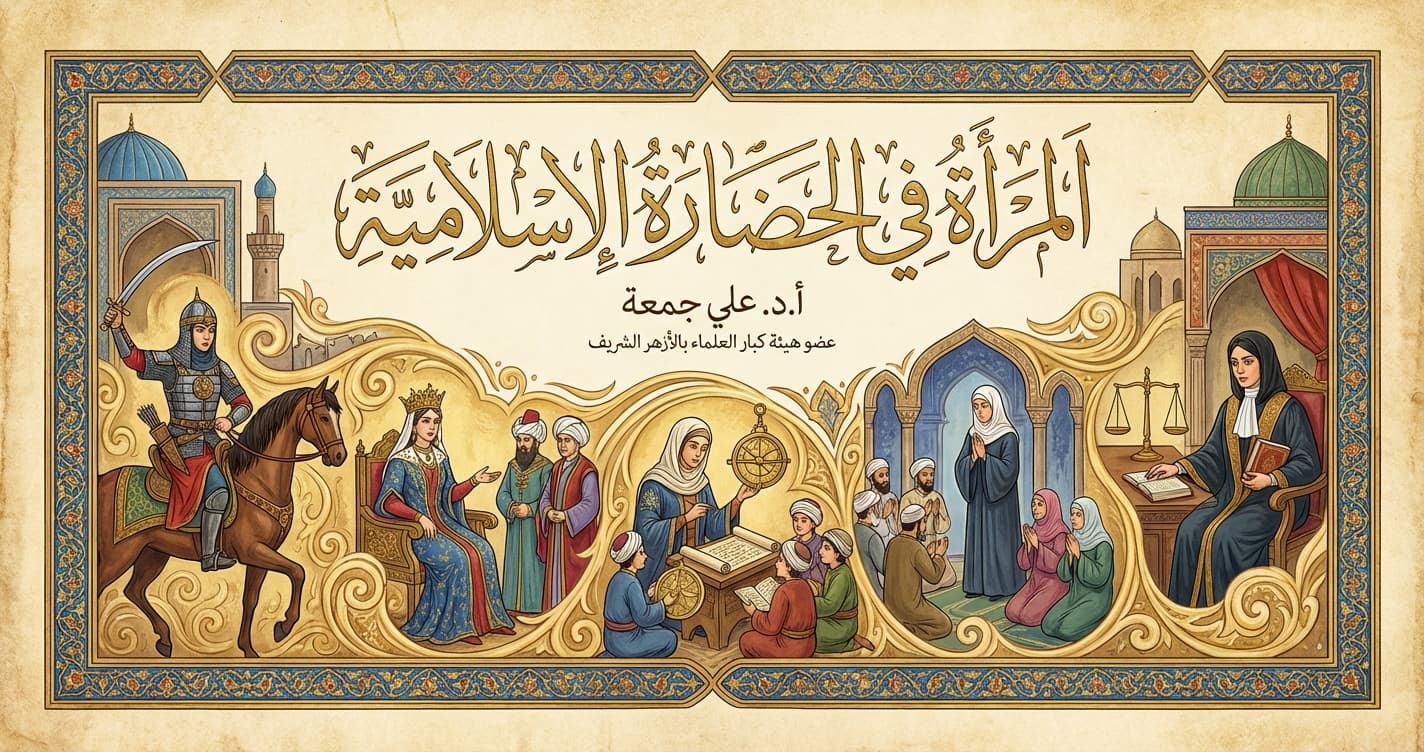 اَلْمَرْأَةُ فِي الْحَضَارَةُ الإِسْلَامِيَّةِ
أ.د. علي جمعة
عضو هيئة كبار العلماء بالأزهر الشريف